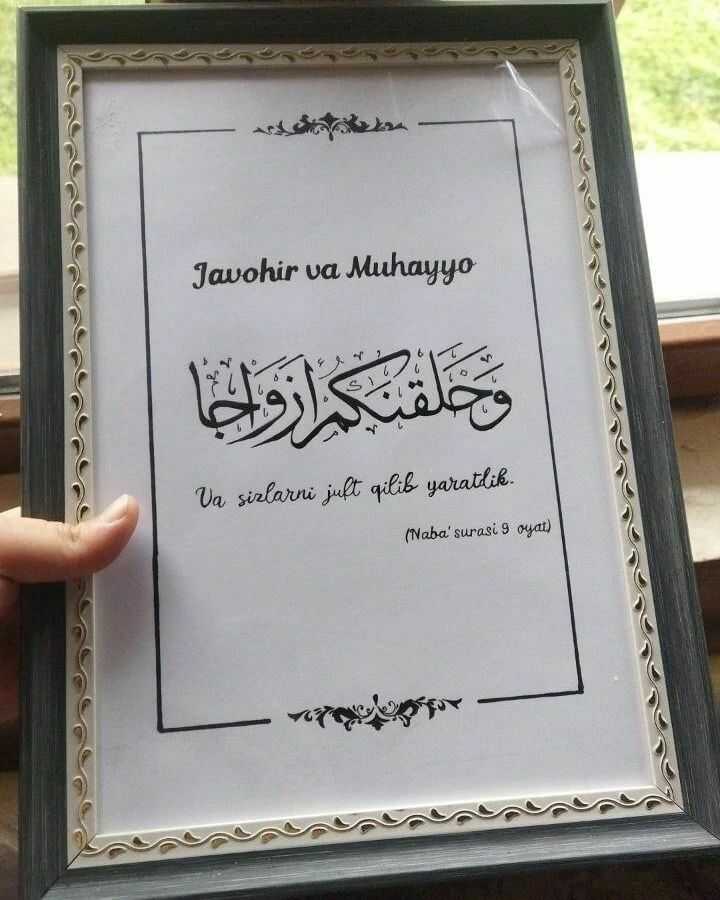 Javohir va Muhayyo
وَخَلَقْنَٰكُمْ أَزْوَٰجًا
Va sizlarni juft qilib yaratdik.
(Naba' surasi 9 oyat)